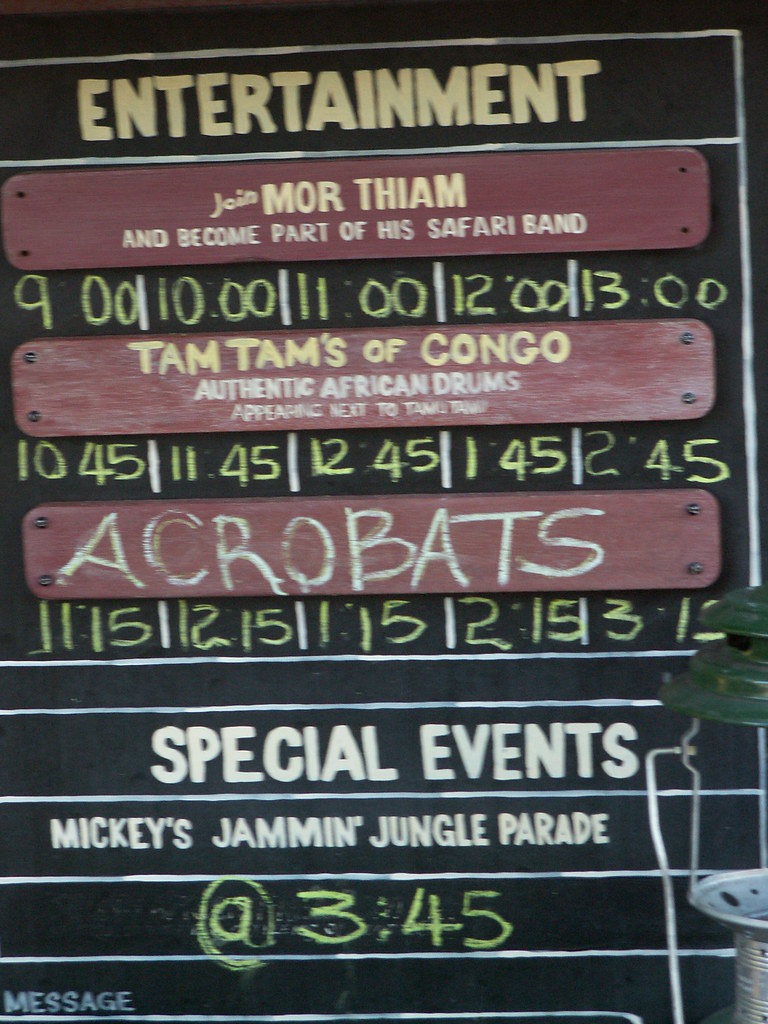 ENTERTAINMENT
Join MOR THIAM
AND BECOME PART OF HIS SAFARI BAND
9 00 | 10:00 | 11:00 | 12:00 | 13:00
TAM TAM'S OF CONGO
AUTHENTIC AFRICAN DRUMS
APPEARING NEXT TO
10 45 | 11:45 | 12:45 | 1:45 | 2:45
ACROBATS
11:15 | 12:15 | 1:15 | 2:15 | 3:15
SPECIAL EVENTS
MICKEY'S JAMMIN' JUNGLE PARADE
@ 3:45
MESSAGE